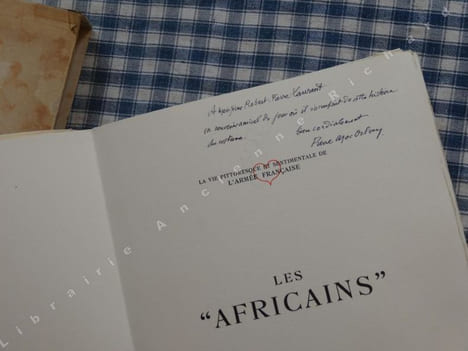 A Monsieur Robert-Pierre Laurent
en souvenir amical du jour où il de cette histoire
bien cordialement
Pierre Mac Orlan
LA VIE PITTORESQUE & SENTIMENTALE DE
L'ARMÉE FRANÇAISE
LES
"AFRICAINS"
Librairie Ancienne Richard